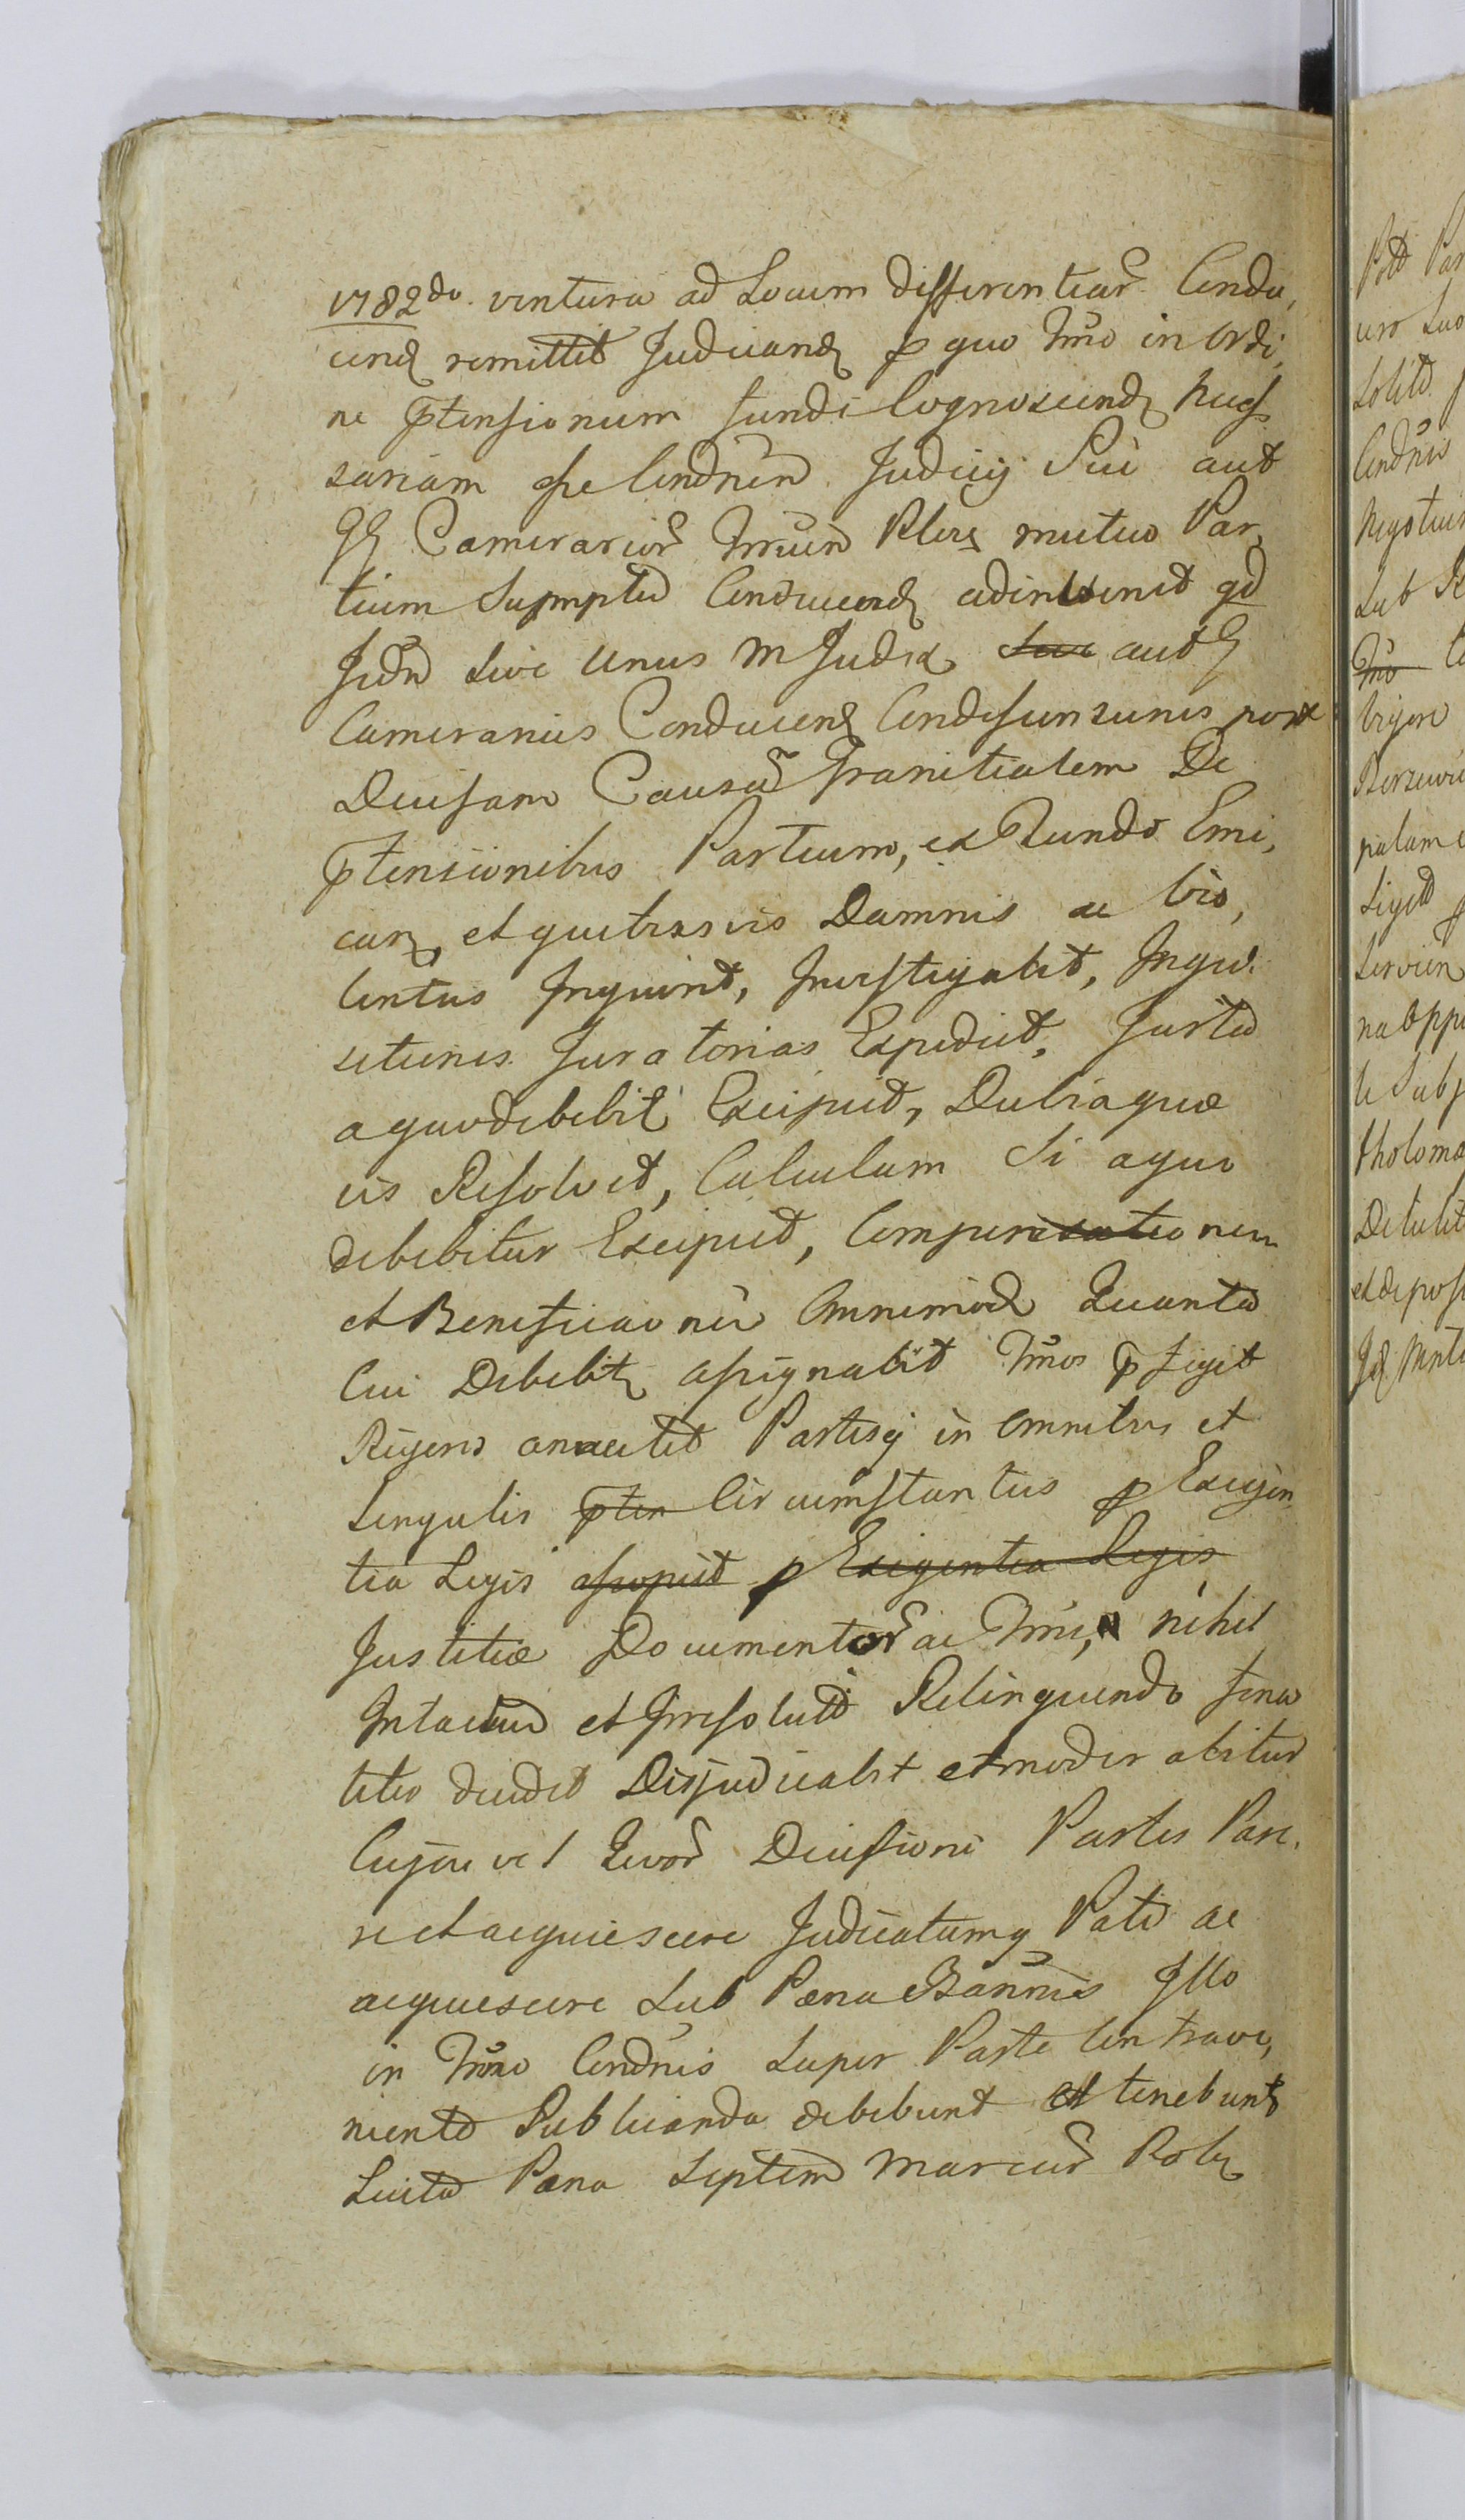 1782do. ventura ad Locum differentiar Condu,
cend remittit Judicand p quo Trmo in Ordi,
ne ptensionum fundi Cognoscend necess
sariam sse Condnen Judicij Sui aut
GG Camerarior Trrum Plen mutuo Par,
tium Sumptu Conducend adinvenit qd
Judm Sive Unus M Judex aut G
Camerarius Conducend Condescensionis post
Decisam Causam Granitialem De
ptensionibus Partium, ex Fundo Emi,
can, et quibusvis Damnis ac Vio,
lentus Inquiret, Investigabit, Inqui
sitiones Juratorias Expediet, Jurta
a quo debebit Excipiet, Dubiaque
eis Resolvet, Calculum Si a quo
debebitur Excipiet, Compensationem
et Bonificaonem Omnimod Quanta
Cui Debebit assignabit Trmos p figet
Rigens annectet Partesq in Omnibus et
Singulis pten Circumstantiis p Exigen
tia Legis p Exigentia Legis
Justitiæ Documentor ac Trmi, nihil
Intactum et Irresolutum Relinquendo fina
liter decidet Disjudicabit et moderabitur
Cujus vel Quor Decisioni Partes Pare
re et acquiescere Judicatumq Pati ac
acquiescere Sub Pæna Bannis Illo
in Trmo Condnis Super Parte Contrave,
niente Publicanda debebunt Et tenebunt
Luita Pæna Septem Marcar Polu
Pott Par
uro Suo
Solitd
Condnis
Negotiu
Sub
Trmo
Vigore
Berzewi
palam
Siget
Servien
na Oppi
le Subj
tholoma
Detulit
et depos